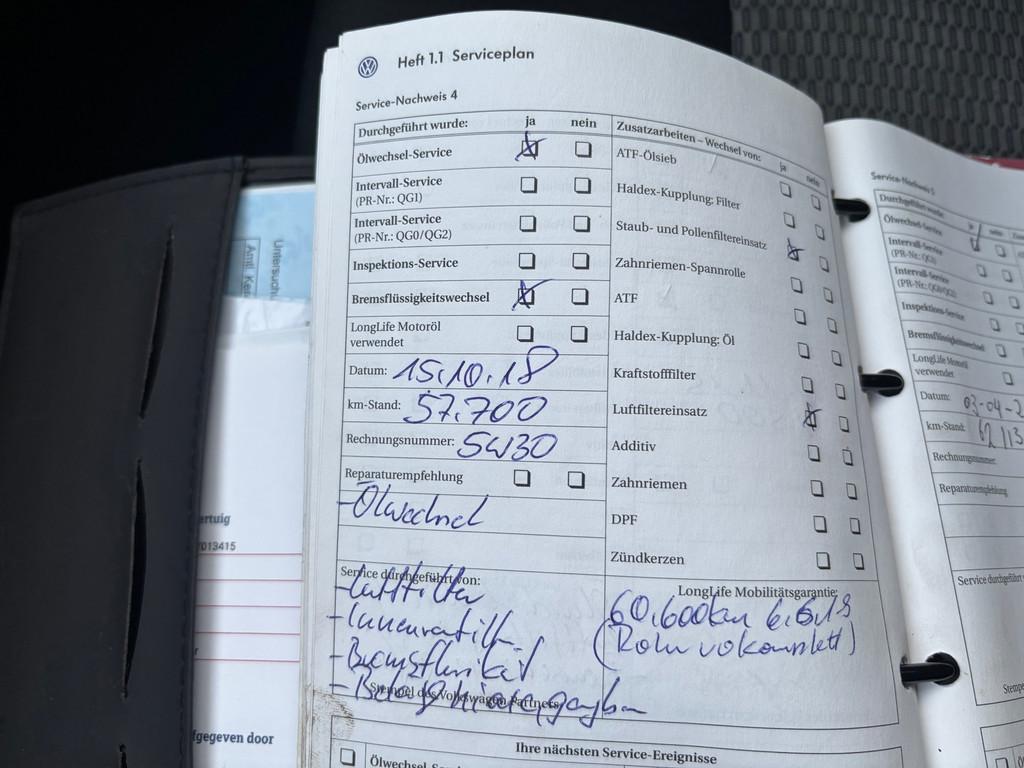 Heft 1.1 Serviceplan
Service-Nachweis 4
Durchgeführt wurde: ja nein
Ölwechsel-Service
Intervall-Service
(PR-Nr.: QG1)
Intervall-Service
(PR-Nr.: QG0/QG2)
Inspektions-Service
Bremsflüssigkeitswechsel
LongLife Motoröl
verwendet
Datum: 15.10.18
km-Stand: 57.700
Rechnungsnummer: 5W30
Reparaturempfehlung
-Ölwechsel
Service durchgeführt von:
-Luftfilter
-
-
-
Stempel des Volkswagen Partners
Zusatzarbeiten – Wechsel von: ja nein
ATF-Ölsieb
Haldex-Kupplung: Filter
Staub- und Pollenfiltereinsatz
Zahnriemen-Spannrolle
ATF
Haldex-Kupplung: Öl
Kraftstofffilter
Luftfiltereinsatz
Additiv
Zahnriemen
DPF
Zündkerzen
LongLife Mobilitätsgarantie:
60.600km
Ihre nächsten Service-Ereignisse
Ölwechsel-Se
Service-Nachweis 5
Durchgeführt wurde:
Ölwechsel-Service
Intervall-Service
(PR-Nr.: QG1)
Intervall-Service
(PR-Nr.: QG0/QG2)
Inspektions-Service
Bremsflüssigkeitswechsel
LongLife Motoröl
verwendet
Datum: 03-04-2
km-Stand: 62 113
Rechnungsnummer:
Reparaturempfehlung
Service durchgeführt
Stempe
Untersuchu
Amtl. Ken
ertuig
7013415
fgegeven door